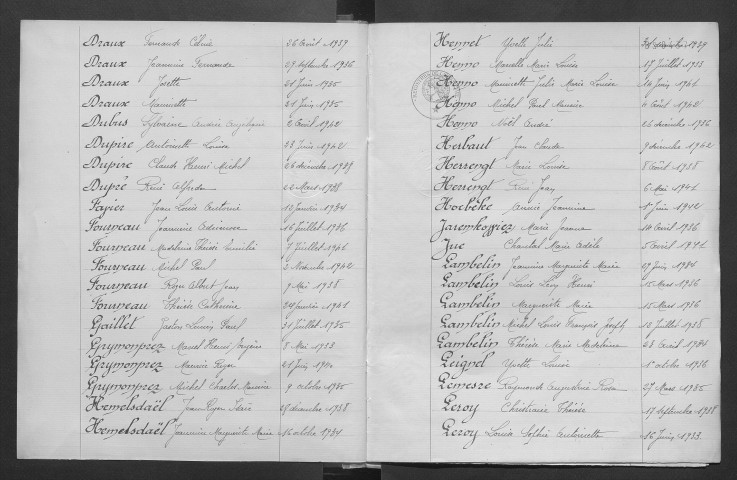 Draux Fernande Célina 26 Août 1939
Draux Jeannine Fernande 29 Septembre 1936
Draux Josette 21 Juin 1935
Draux 21 Juin 1935
Dubus Sylviane Andrée Angélique 2 Avril 1942
Dupire Antoinette Louise 23 Juin 1942
Dupire Claude Henri Michel 26 décembre
Dupré René Alfred 22 Mars
Fayier Jean Louis 10 Janvier 1934
Fourneau Jeannine 16 Juillet 1936
Fourneau Madeleine Thérèse 7 Juillet 1941
Fourneau Michel Paul 2 Novembre 1942
Fourneau Roger Albert Jean 9 Mai 1938
Fourneau Thérèse Catherine 24 Janvier 1941
Gaillet Paul 31 Juillet 1935
Grymonprez Marcel Henri 8 Mai 1933
Grymonprez Maurice Roger 21 Juin
Grymonprez Michel Charles Maurice 9 octobre 1935
Hemelsdaël Jean Roger décembre 1938
Hemelsdaël Jeannine Marguerite Marie 16 octobre 1934
Hennet Yvette Julie 1939
Henno Marcelle Marie Louise 17 Juillet 1933
Henno Marinette Julie Marie Louise 14 Juin 1941
Henno Michel Paul Maurice Avril 1942
Henno Noël André 26 décembre 1936
Herbaut Jean Claude 9 décembre 1942
Herrengt Marie Louise 8 Août 1938
Herrengt René Jean 6 Mai 1941
Hoebeke Annie Jeannine 1er Juin 1942
Jaremkoffiez Marie Jeanne 14 Avril 1936
Jue Chantal Marie Adèle 5 Avril 1942
Lambelin Jeannine Marguerite Marie 17 Juin 1934
Lambelin Louis Henri 15 Mars 1936
Lambelin Marguerite Marie 15 Mars 1936
Lambelin Michel Louis François Joseph 18 Juillet 1938
Lambelin Thérèse Marie Madeleine 28 Avril 1934
Leignel Yvette Louise 1er octobre 1936
Lemesre Raymonde Rosa 27 Mars 1935
Leroy Christiane Thérèse 17 Septembre 1938
Leroy Louise Sophie Antoinette 16 Juin 1933